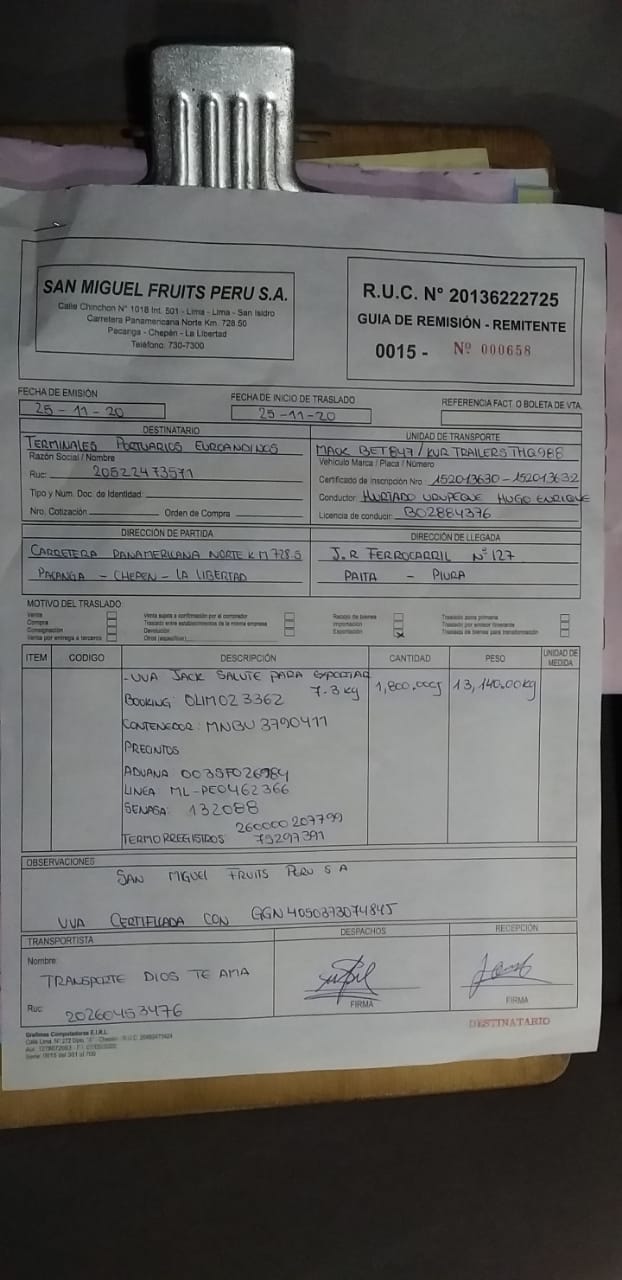 SAN MIGUEL FRUITS PERU S.A.
Calle Chinchon N° 1018 Int. 501 - Lima - Lima - San Isidro
Carretera Panamericana Norte Km. 728.50
Pacanga - Chepén - La Libertad
Teléfono: 730-7300
R.U.C. N° 20136222725
GUIA DE REMISIÓN - REMITENTE
0015 - Nº 000658
FECHA DE EMISIÓN
25-11-20
FECHA DE INICIO DE TRASLADO
25-11-20
REFERENCIA FACT. O BOLETA DE VTA.
DESTINATARIO
TERMINALES PORTUARIOS EUROANDINOS
Razón Social / Nombre
Ruc: 20522473571
Tipo y Num. Doc. de Identidad:
Nro. Cotización Orden de Compra
UNIDAD DE TRANSPORTE
MACK BET847 / KUR TRAILERS THG988
Vehículo Marca / Placa / Número
Certificado de Inscripción Nro. 152013630 - 152013632
Conductor HURTADO URUPEQUE HUGO ENRIQUE
Licencia de conducir: B02884376
DIRECCIÓN DE PARTIDA
CARRETERA PANAMERICANA NORTE KM 728.5
PACANGA - CHEPEN - LA LIBERTAD
DIRECCIÓN DE LLEGADA
J.R FERROCARRIL Nº 127
PAITA - PIURA
MOTIVO DEL TRASLADO:
Venta
Compra
Consignación
Venta por entrega a terceros
Venta sujeta a confirmación por el comprador
Traslado entre establecimientos de la misma empresa
Devolución
Otros (especificar)
Recojo de bienes
Importación
Exportación X
Traslado zona primaria
Traslado por emisor itinerante
Traslado de bienes para transformación
ITEM CODIGO DESCRIPCIÓN CANTIDAD PESO UNIDAD DE MEDIDA
-UVA JACK SALUTE PARA EXPORTAR
7.3 kg 1,800.00CJ 13,140.00kg
BOOKING: OLIM023362
CONTENEDOR: MNBU 3790411
PRECINTOS
ADUANA: 0035F026984
LINEA ML-PE0462366
SENASA: 132088
260000207799
TERMORREGISTROS 75297391
OBSERVACIONES
SAN MIGUEL FRUITS PERU S A
UVA CERTIFICADA CON GGN 4050373074845
TRANSPORTISTA
Nombre:
TRANSPORTE DIOS TE AMA
Ruc: 20260453476
DESPACHOS
FIRMA
RECEPCIÓN
FIRMA
DESTINATARIO
Graficas Computadoras E.I.R.L.
Serie: 0015 del 301 al 700